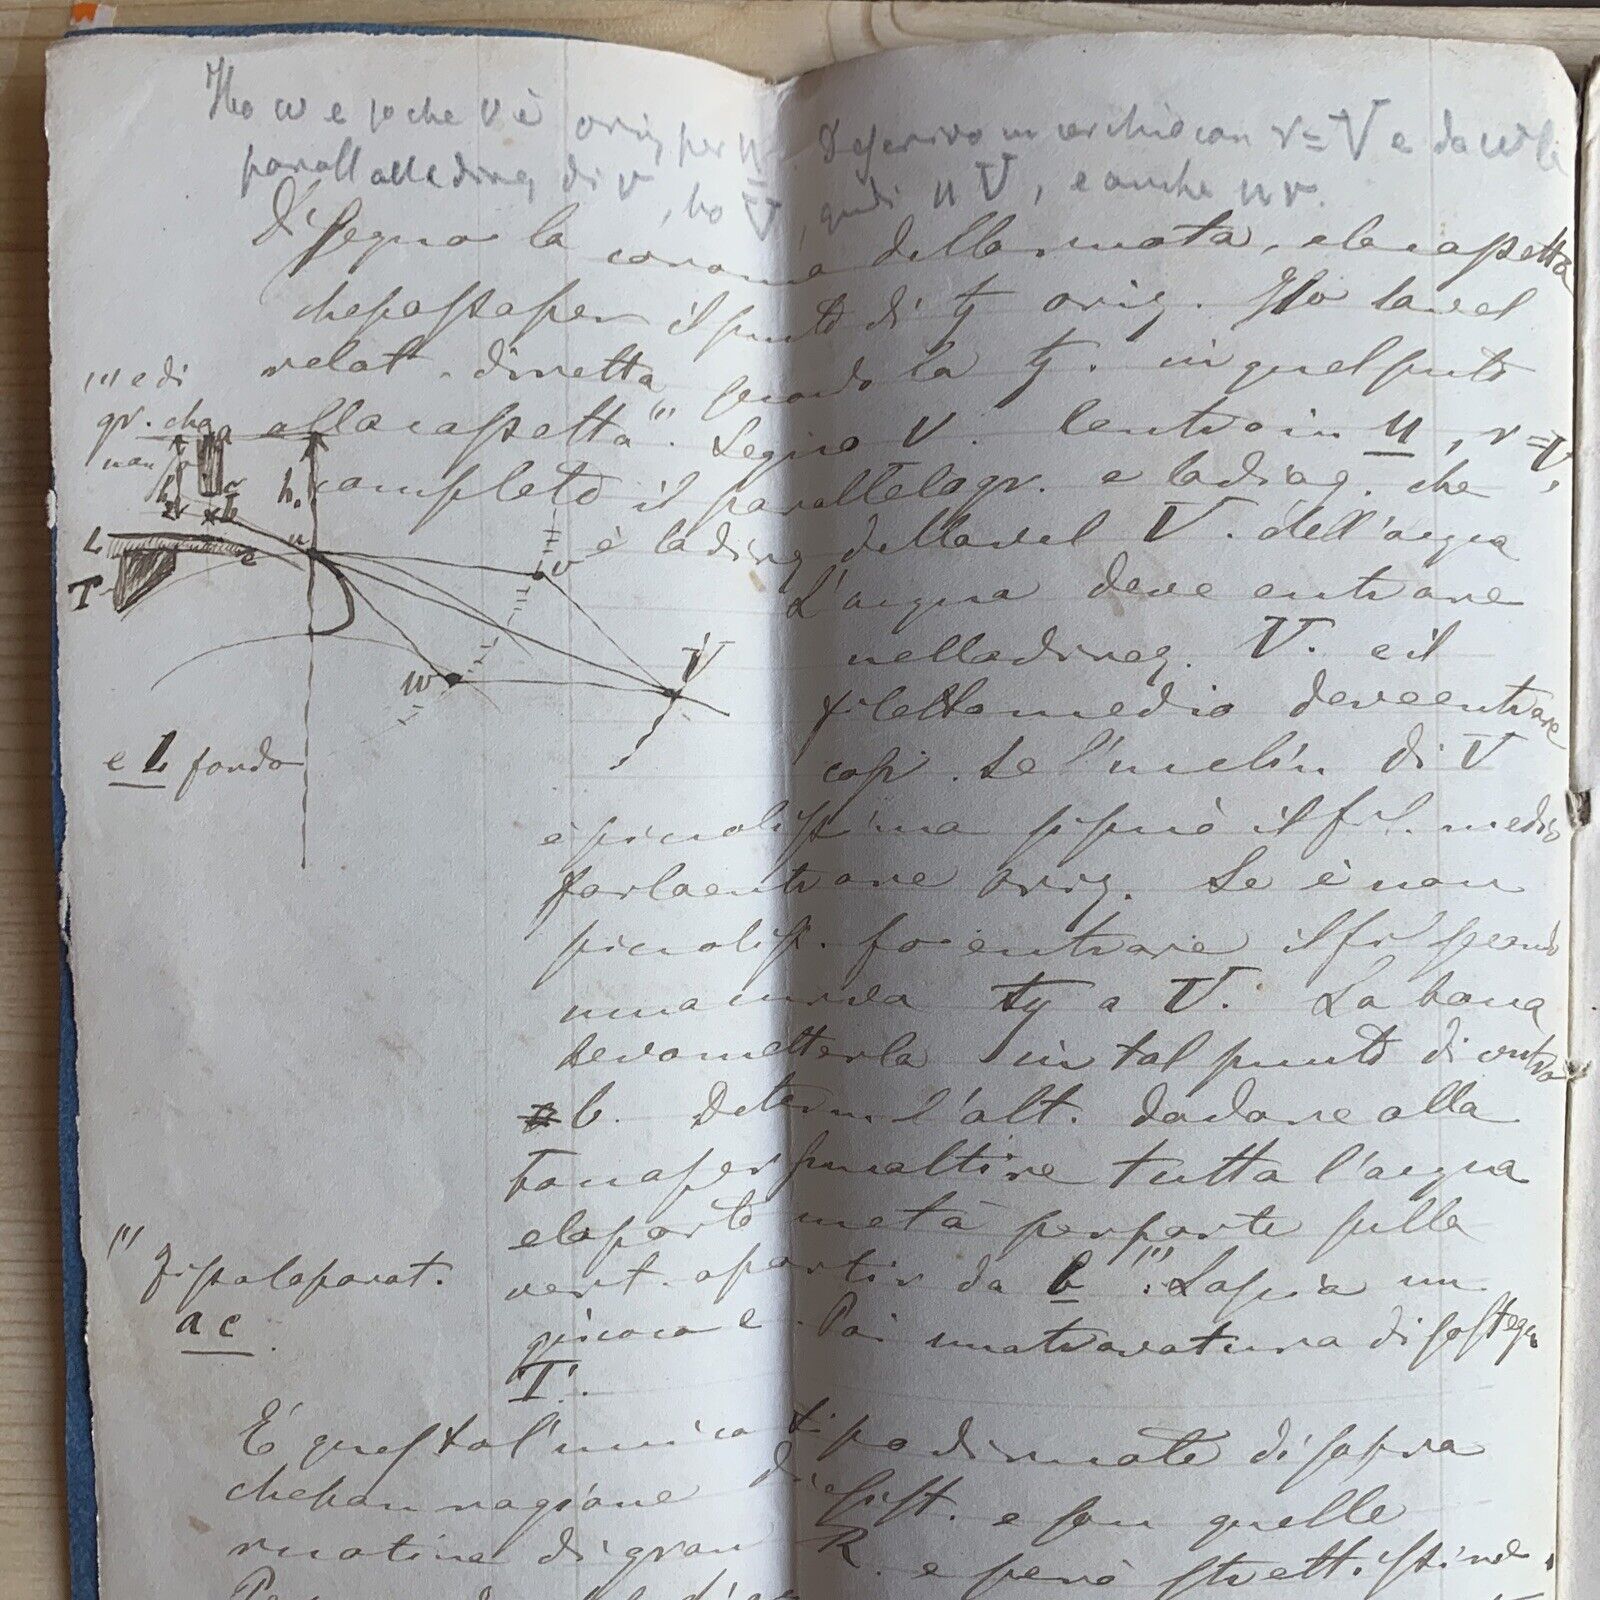 Ho w e so che v è oriz per u. Descrivo un cerchio con r = V e da w la
parall alla direz di v, ho V, quindi u V, e anche u v.
Disegno la corona della ruota, e la cassetta
che passa per il punto di tg oriz. Ho la vel
relat. diretta secondo la tg. in quel punto
alla cassetta". Segno v. Centro in u, r = V,
completo il parallelogr. e la diag. che
è la direz della vel V. dell'acqua
L'acqua deve entrare
nella direz. V. e il
filetto medio deve entrare
così. Se l'inclin di V
è piccolissima si può il fil. medio
farlo entrare oriz. Se è non
piccoliss. fo entrare il fil secondo
una curva tg a V. La bocca
devo metterla in tal punto di entra
b. Determ. l'alt. da dare alla
bocca per smaltire tutta l'acqua
e la porto metà per parte sulla
vert. a partir da b". Lascia un
giuoco e. Poi una travatura di sostegno
T.
È questo l'unico tipo di ruote di sopra
che han ragione di esist. e son quelle
ruotine di gran R. e però strettissime.
"e di
gr. cha
a
h
h.
b
L
T
e
u
v
w
V
e L fondo
" Fisso la parat.
a c